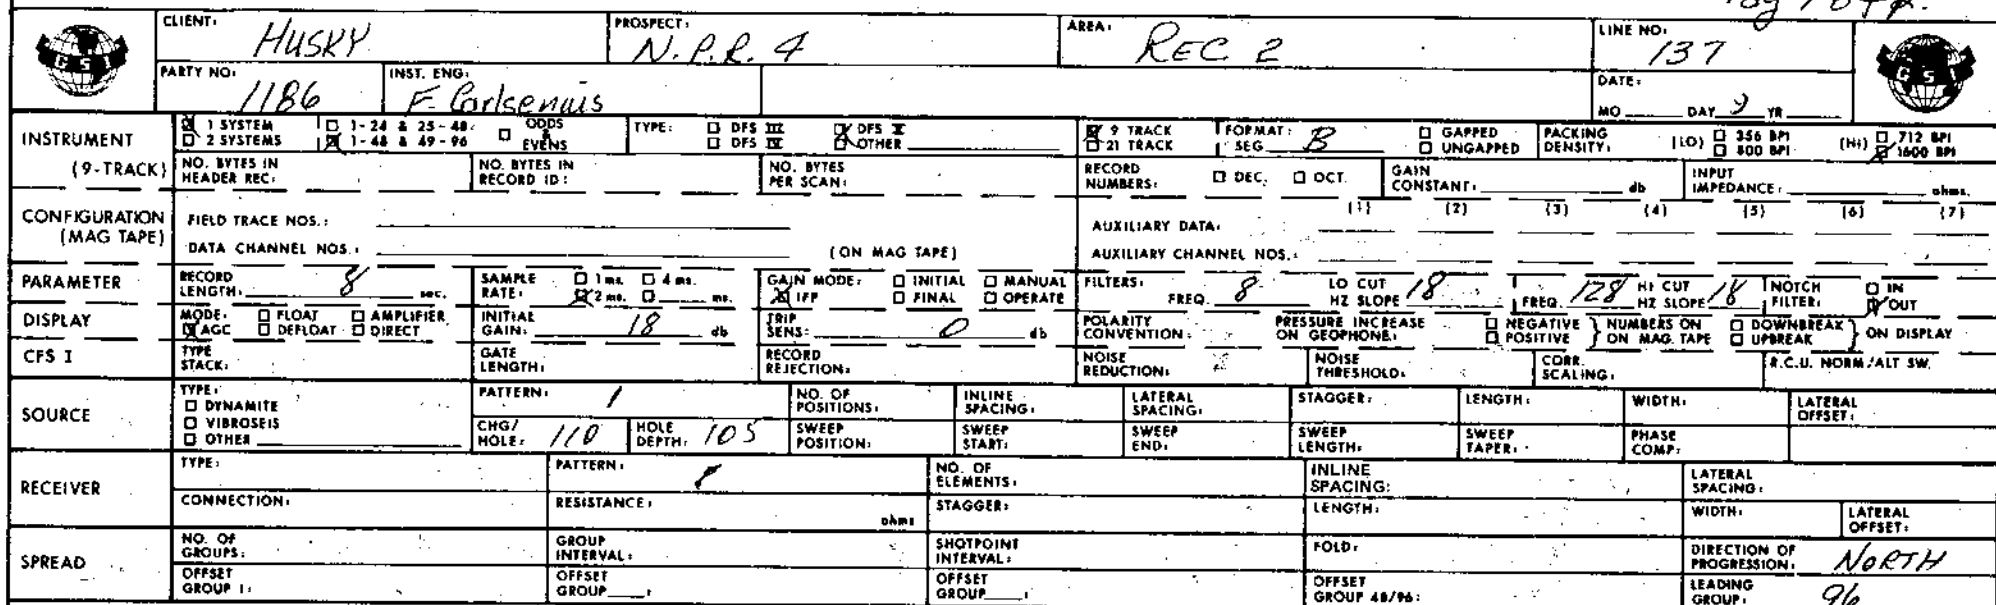 CLIENT: HUSKY PROSPECT: N.P.R. 4 AREA: REC 2 LINE NO: 137
GSI GSI
PARTY NO: 1186 INST. ENG: F. DATE:
MO DAY YR
INSTRUMENT ☒ 1 SYSTEM ☐ 1-24 & 25-48: ☐ ODDS & EVENS TYPE: ☐ DFS III ☒ DFS V ☒ 9 TRACK FORMAT: SEG B ☐ GAPPED PACKING DENSITY: (LO) ☐ 356 BPI (HI) ☐ 712 BPI
☐ 2 SYSTEMS ☒ 1-48 & 49-96 ☐ DFS IV ☐ OTHER ☐ 21 TRACK ☐ UNGAPPED ☐ 800 BPI ☒ 1600 BPI
(9-TRACK) NO. BYTES IN HEADER REC: NO. BYTES IN RECORD ID: NO. BYTES PER SCAN: RECORD NUMBERS: ☐ DEC. ☐ OCT. GAIN CONSTANT: db INPUT IMPEDANCE: ohms.
CONFIGURATION (MAG TAPE) FIELD TRACE NOS.: AUXILIARY DATA: (1) (2) (3) (4) (5) (6) (7)
DATA CHANNEL NOS.: (ON MAG TAPE) AUXILIARY CHANNEL NOS.:
PARAMETER RECORD LENGTH: 8 sec. SAMPLE RATE: ☐ 1 ms. ☐ 4 ms. ☒ 2 ms. ☐ ms. GAIN MODE: ☐ INITIAL ☐ MANUAL ☒ IFP ☐ FINAL ☐ OPERATE FILTERS: FREQ. 8 LO CUT HZ SLOPE 18 FREQ. 128 HI CUT HZ SLOPE 18 NOTCH FILTER: ☐ IN ☒ OUT
DISPLAY MODE: ☐ FLOAT ☐ AMPLIFIER ☒ AGC ☐ DEFLOAT ☐ DIRECT INITIAL GAIN: 18 db TRIP SENS: 0 db POLARITY CONVENTION: PRESSURE INCREASE ON GEOPHONE: ☐ NEGATIVE ☐ POSITIVE } NUMBERS ON ON MAG. TAPE ☐ DOWNBREAK ☐ UPBREAK } ON DISPLAY
CFS I TYPE STACK: GATE LENGTH: RECORD REJECTION: NOISE REDUCTION: NOISE THRESHOLD: CORR. SCALING: R.C.U. NORM/ALT SW.
SOURCE TYPE: ☐ DYNAMITE ☐ VIBROSEIS ☐ OTHER PATTERN: 1 NO. OF POSITIONS: INLINE SPACING: LATERAL SPACING: STAGGER: LENGTH: WIDTH: LATERAL OFFSET:
CHG/HOLE: 110 HOLE DEPTH: 105 SWEEP POSITION: SWEEP START: SWEEP END: SWEEP LENGTH: SWEEP TAPER: PHASE COMP:
RECEIVER TYPE: PATTERN: NO. OF ELEMENTS: INLINE SPACING: LATERAL SPACING:
CONNECTION: RESISTANCE: ohms STAGGER: LENGTH: WIDTH: LATERAL OFFSET:
SPREAD NO. OF GROUPS: GROUP INTERVAL: SHOTPOINT INTERVAL: FOLD: DIRECTION OF PROGRESSION: NORTH
OFFSET GROUP 1: OFFSET GROUP : OFFSET GROUP : OFFSET GROUP 48/96: LEADING GROUP: 96